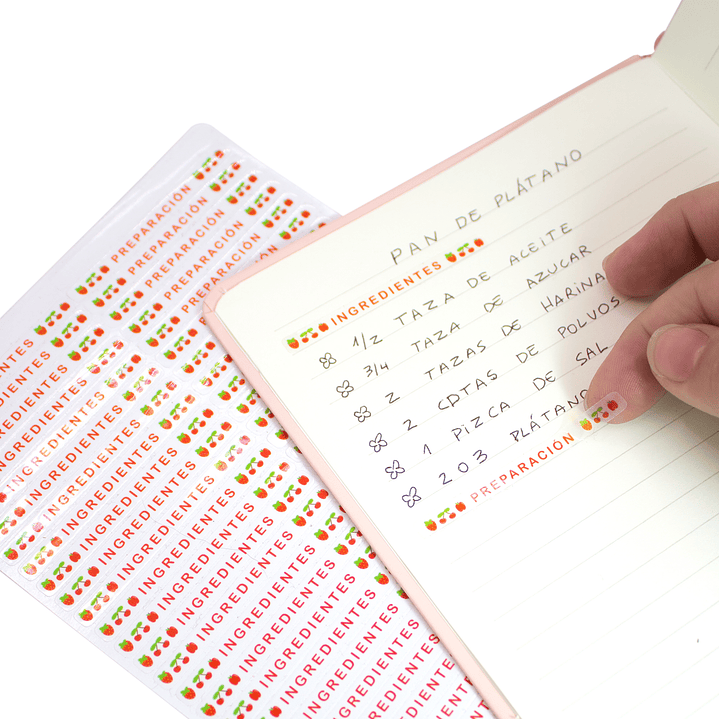 PAN DE PLÁTANO
INGREDIENTES
1/2 TAZA DE ACEITE
3/4 TAZA DE AZUCAR
2 TAZAS DE HARINA
2 CDTAS DE POLVOS
1 PIZCA DE SAL
2 O 3 PLÁTANO
PREPARACIÓN
PREPARACIÓN
PREPARACIÓN
PREPARACIÓN
PREPARACIÓN
PREPARACIÓN
INGREDIENTES
INGREDIENTES
INGREDIENTES
INGREDIENTES
INGREDIENTES
INGREDIENTES
INGREDIENTES
INGREDIENTES
INGREDIENTES
INGREDIENTES
INGREDIENTES
INGREDIENTES